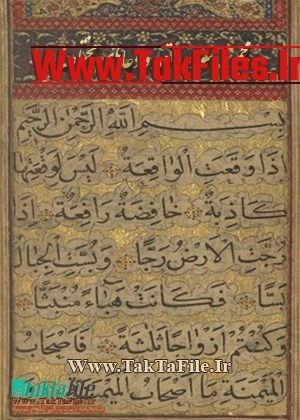 www.TakFiles.Ir
بسم الله الرحمن الرحيم
اذا وقعت الواقعة ليس لوقعتها
كاذبة خافضة رافعة اذا
رجت الارض رجا وبست الجبال
بسا فكانت هباء منبثا
وكنتم ازواجا ثلثة فاصحاب
www.TakTaFile.Ir
الميمنة ما اصحاب الميمنة
www.TakTaFile.Ir